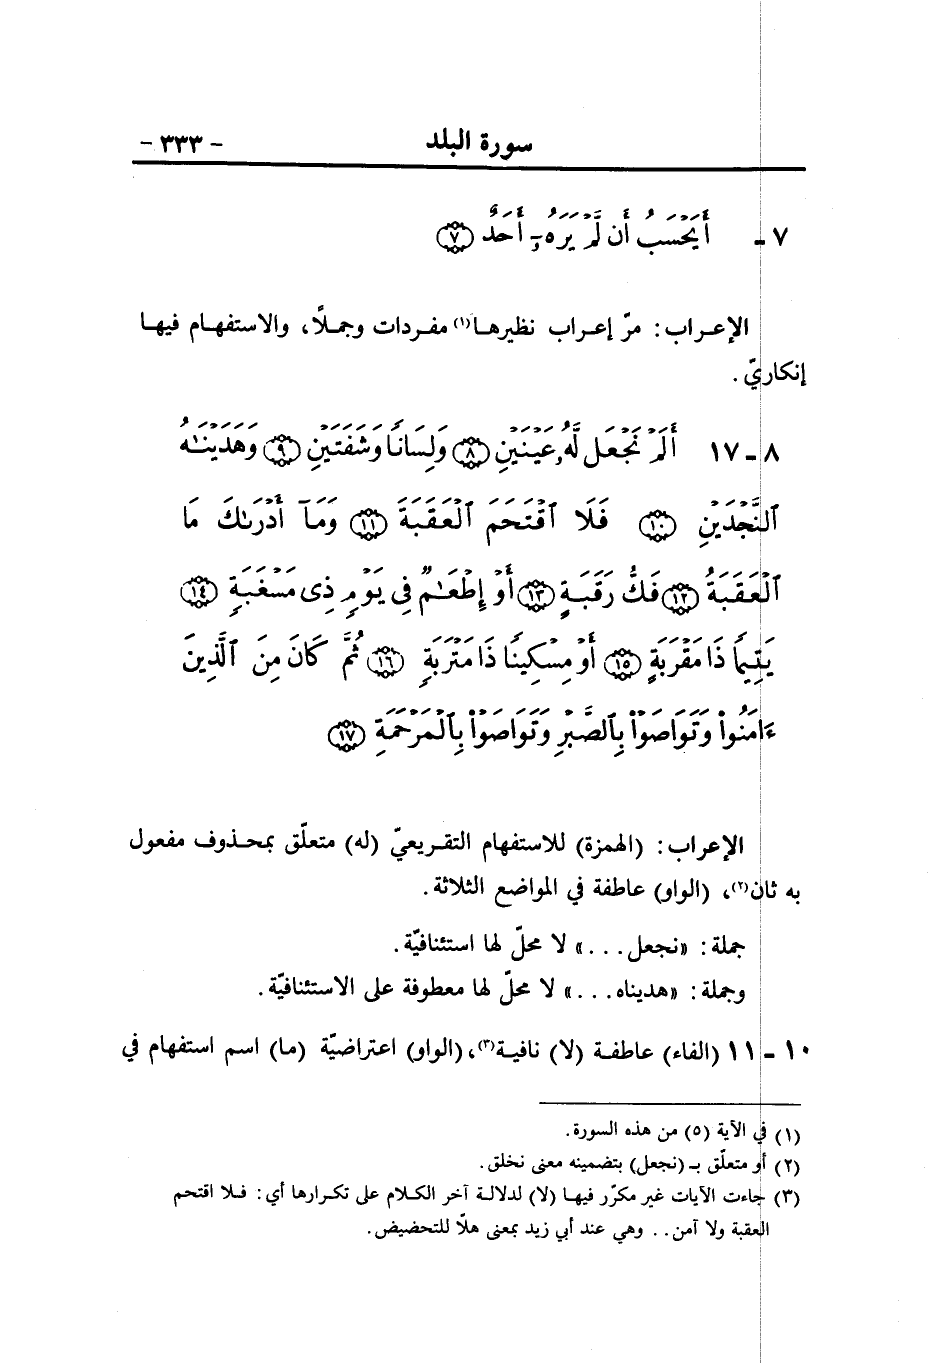 سورة البلد - ٣٣٣ -
٧ - أَيَحْسَبُ أَن لَّمْ يَرَهُۥٓ أَحَدٌ ﴿٧﴾
الإعـراب : مرّ إعراب نظيرهـا(١) مفـردات وجمـلًا، والاستفهـام فيهـا
إنكاريّ .
٨ - ١٧ أَلَمْ نَجْعَل لَّهُۥ عَيْنَيْنِ ﴿٨﴾ وَلِسَانًا وَشَفَتَيْنِ ﴿٩﴾ وَهَدَيْنَٰهُ
ٱلنَّجْدَيْنِ ﴿١٠﴾ فَلَا ٱقْتَحَمَ ٱلْعَقَبَةَ ﴿١١﴾ وَمَآ أَدْرَىٰكَ مَا
ٱلْعَقَبَةُ ﴿١٢﴾ فَكُّ رَقَبَةٍ ﴿١٣﴾ أَوْ إِطْعَٰمٌ فِى يَوْمٍ ذِى مَسْغَبَةٍ ﴿١٤﴾
يَتِيمًا ذَا مَقْرَبَةٍ ﴿١٥﴾ أَوْ مِسْكِينًا ذَا مَتْرَبَةٍ ﴿١٦﴾ ثُمَّ كَانَ مِنَ ٱلَّذِينَ
ءَامَنُوا۟ وَتَوَاصَوْا۟ بِٱلصَّبْرِ وَتَوَاصَوْا۟ بِٱلْمَرْحَمَةِ ﴿١٧﴾
الإعراب : (الهمزة) للاستفهام التقـريعيّ (له) متعلّق بمحـذوف مفعول
به ثان(٢)، (الواو) عاطفة في المواضع الثلاثة .
جملة : «نجعل . . .» لا محلّ لها استئنافيّة .
وجملة : «هديناه . . .» لا محلّ لها معطوفة على الاستئنافيّة .
١٠ - ١١ (الفاء) عاطفـة (لا) نافيـة(٣)، (الواو) اعتراضيّة (ما) اسم استفهام في
(١) في الآية (٥) من هذه السورة .
(٢) أو متعلّق بـ (نجعل) بتضمينه معنى نخلق .
(٣) جاءت الآيات غير مكرّر فيهـا (لا) لدلالـة آخر الكـلام على تكـرارها أي : فـلا اقتحم
العقبة ولا آمن . . وهي عند أبي زيد بمعنى هلّا للتحضيض .